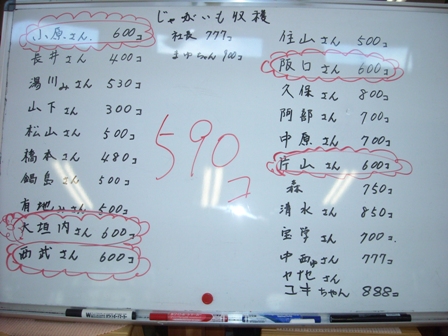 じゃがいも収穫
社長 777コ
まやちゃん 900コ
小原さん 600コ
長井さん 400コ
湯川みさん 530コ
山下さん 300コ
松山さん 500コ
橋本さん 480コ
鍋島さん 500コ
有地ふさん 500コ
大垣内さん 600コ
西武さん 600コ
590コ
住山さん 500コ
阪口さん 600コ
久保さん 800コ
阿部さん 700コ
中原さん 700コ
片山さん 600コ
森 750コ
清水さん 850コ
さん 700コ
中西ゆさん 777コ
ヤセさん
ユキちゃん 888コ